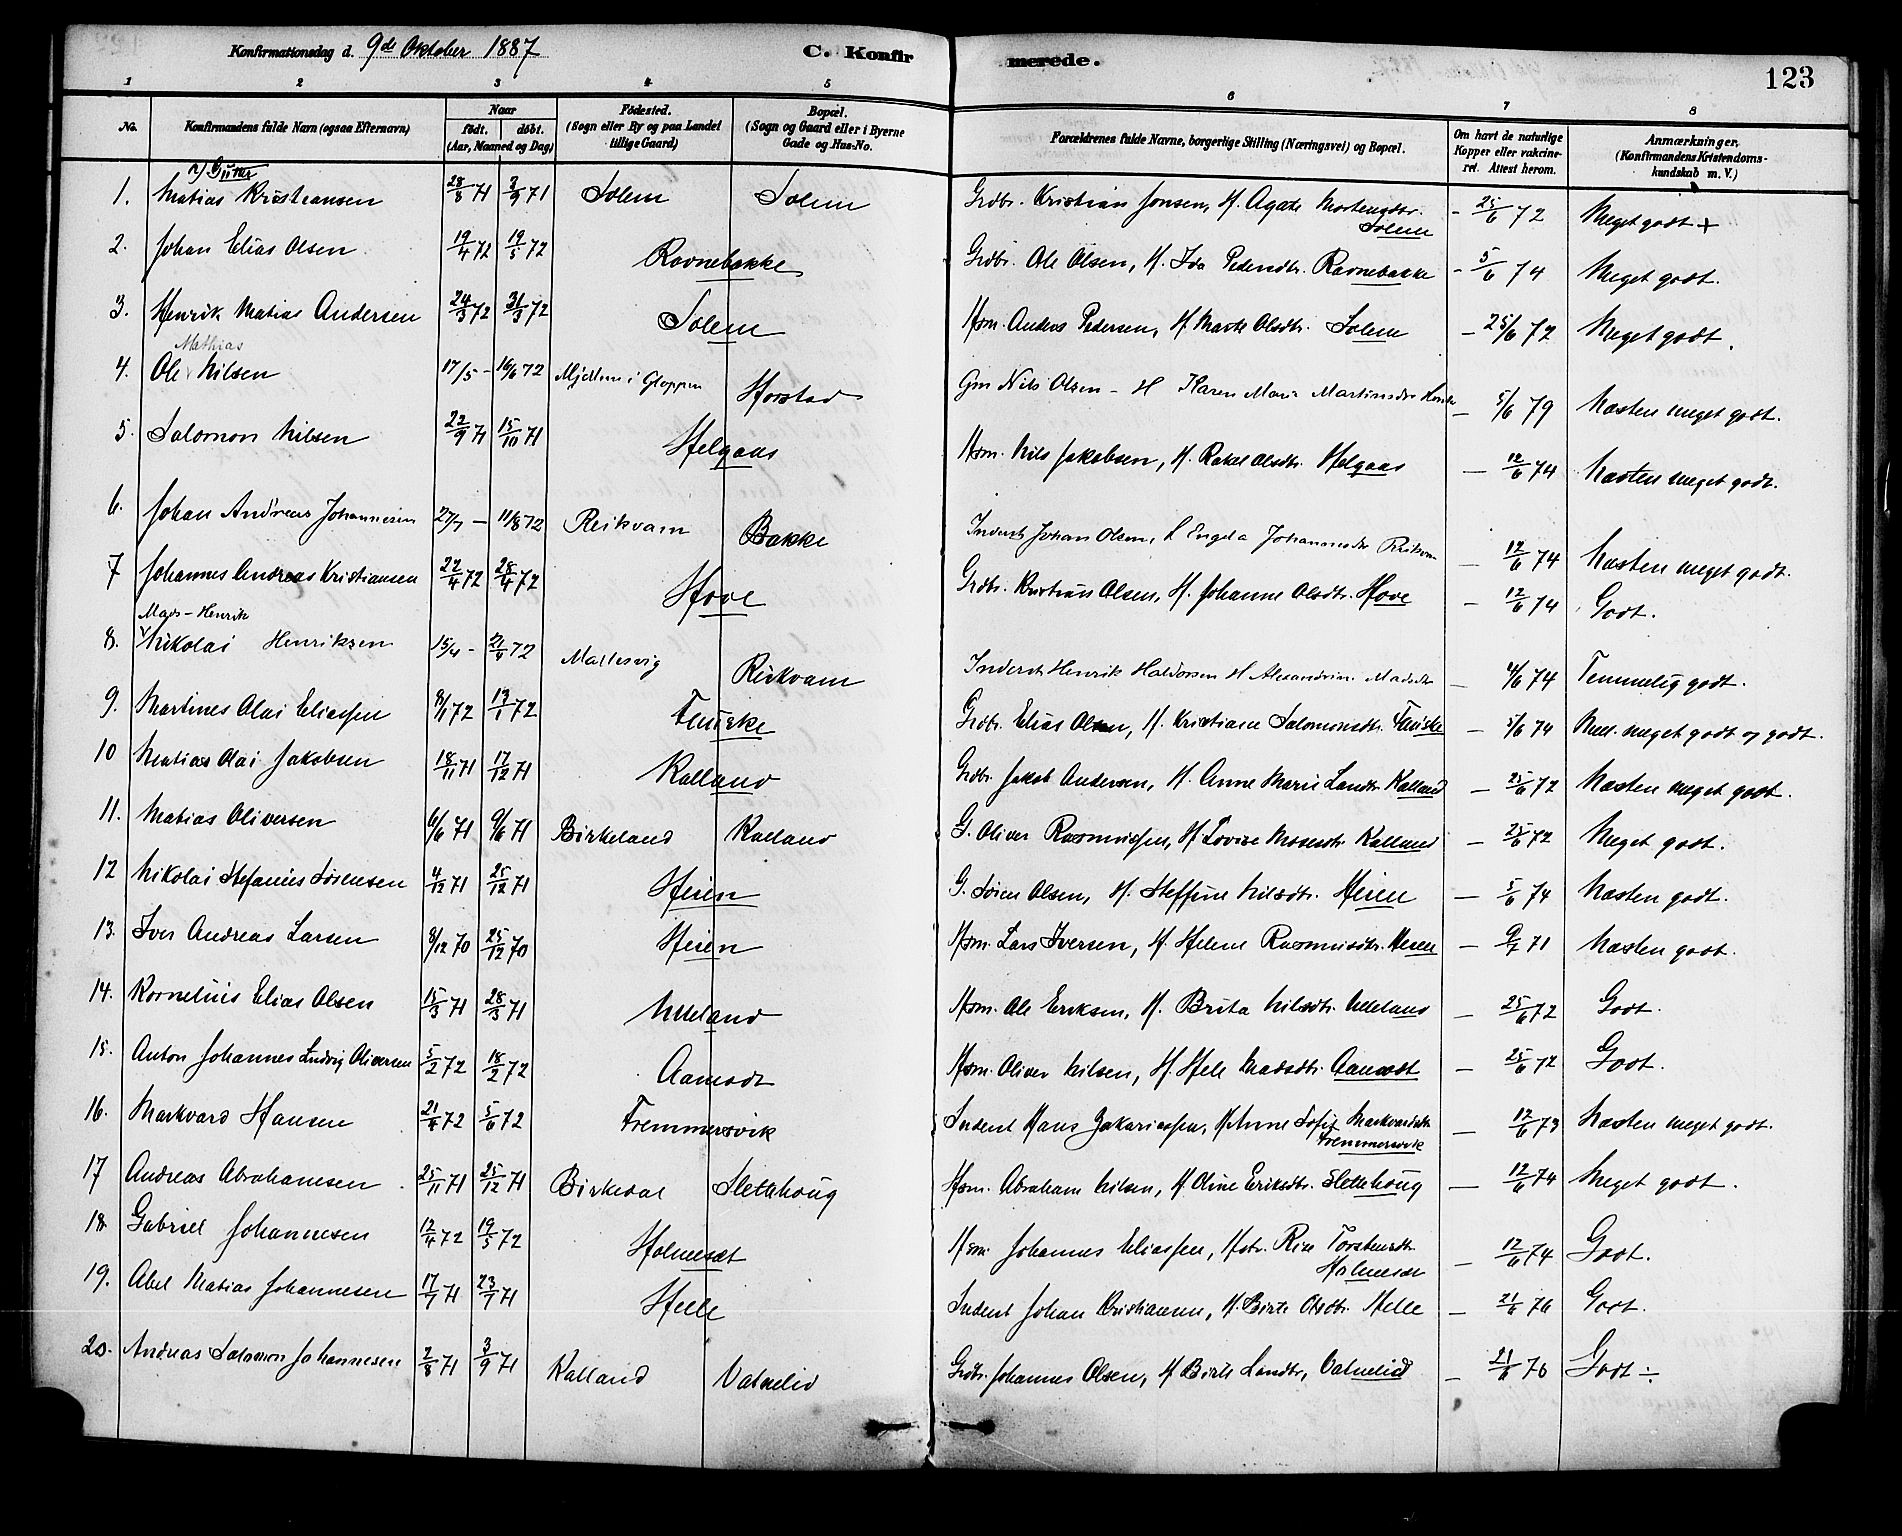 Konfirmationsdag d. 9de Oktober 1887 C. Konfirmerede. 123
1 2 3 4 5 6 7 8
No. Konfirmandens fulde Navn (ogsaa Efternavn) Naar født. døbt. (Aar, Maaned og Dag) Fødested. (Sogn eller By og paa Landet tillige Gaard) Bopæl. (Sogn og Gaard eller i Byerne Gade og Hus-No. Forældrenes fulde Navne, borgerlige Stilling (Næringsvei) og Bopæl. Om havt de naturlige Kopper eller vakcineret. Attest herom. Anmærkninger. (Konfirmandens Kristendomskundskab m. V.)
a) Gutter
1. Matias Kristiansen 28/8 71 3/9 71 Solem Solem Grdbr. Kristian Jonsen, H. Agate Mortensdtr. Solem - 25/6 72 Meget godt +
2. Johan Elias Olsen 19/4 72 19/5 72 Ravnebakke Grdbr. Ole Olsen, H. Ida Pedersdtr. Ravnebakke - 5/6 74 Meget godt.
3. Henrik Matias Andersen 24/3 72 31/3 72 Solem Hsm. Anders Pedersen, H. Marte Olsdtr. Solem - 25/6 72 Meget godt.
4. Ole Mathias Nilsen 17/5 - 16/6 72 Mjellem i Gloppen Horstad Gm Nils Olsen - H Karen Marie Martinsdtr - 5/6 79 Næsten meget godt.
5. Salomon Nilsen 22/9 71 15/10 71 Helgaas Hsm. Nils Jakobsen, H. Rakel Olsdtr. Helgaas - 12/6 74 Næsten meget godt.
6. Johan Andreas Johannesen 27/7 - 11/8 72 Reikvam Bakke Inderst Johan Olsen, H Engela Johannesdtr Reikvam - 12/6 74 Næsten meget godt.
7 Johannes Andreas Kristiansen 22/4 72 28/4 72 Hove Grdbr. Kristian Olsen, H. Johanne Olsdtr. Hove - 12/6 74 Godt.
8. Mads-Henrik Nikolai Henriksen 15/4 - 21/4 72 Mallesvig Reikvam Inderst Henrik Haldorsen H Alexandrine Madsdtr - 4/6 74 Temmelig godt.
9. Martines Olai Eliassen 8/1 72 13/1 72 Fauske Grdbr. Elias Olsen, H. Kristiane Salomonsdtr. Fauske - 5/6 74 Mell. meget godt og godt.
10 Matias Olai Jakobsen 18/11 71 17/12 71 Kalland Grdbr. Jakob Andersen, H. Anne Marie Larsdtr. Kalland - 25/6 72 Næsten meget godt.
11. Matias Oliversen 6/6 71 9/6 71 Birkeland Kalland G. Oliver Rasmussen, H. Lovise Mosesdtr. Kalland - 25/6 72 Meget godt.
12 Nikolai Stefanus Sørensen 4/12 71 25/12 71 Heien G. Søren Olsen, H. Steffine Nilsdtr. Heien - 5/6 74 Næsten godt.
13. Iver Andreas Larsen 8/12 70 25/12 70 Heien Hsm. Lars Iversen, H. Helene Rasmusdtr. Heien - 9/7 71 Næsten godt.
14. Kornelius Elias Olsen 15/3 71 28/3 71 Ulleland Hsm. Ole Eriksen, H. Brita Nilsdtr. Ulleland - 25/6 72 Godt.
15. Anton Johannes Ludvig Oliversen 5/2 72 18/2 72 Aamodt Hsm. Oliver Nilsen, H. Helle Madsdtr. Aamodt - 25/6 72 Godt.
16. Markvard Hansen 21/4 72 5/6 72 Fremmersvik Inderst Hans Zakariassen, H. Anne Sofie Markvardsdtr. Fremmersvik - 12/6 73 Næsten meget godt.
17 Andreas Abrahamsen 25/11 71 25/12 71 Birkedal Slettehoug Hsm. Abraham Nilsen, H. Oline Eriksdtr. Slettehoug - 12/6 74 Meget godt.
18. Gabriel Johannesen 12/4 72 19/5 72 Holmesæt Hsm. Johannes Eliassen, Hstr. Rise Torstensdtr. Holmesæt - 12/6 74 Godt.
19. Abel Matias Johannesen 17/7 71 23/7 71 Helle Inderst Johan Kristiansen, H. Birte Olsdtr. Helle - 21/6 76 Godt.
20. Andreas Salomon Johannesen 2/8 71 3/9 71 Kalland Vatnelid Grdbr. Johannes Olsen, H. Birte Larsdtr, Vatnelid - 21/6 76 Godt ÷